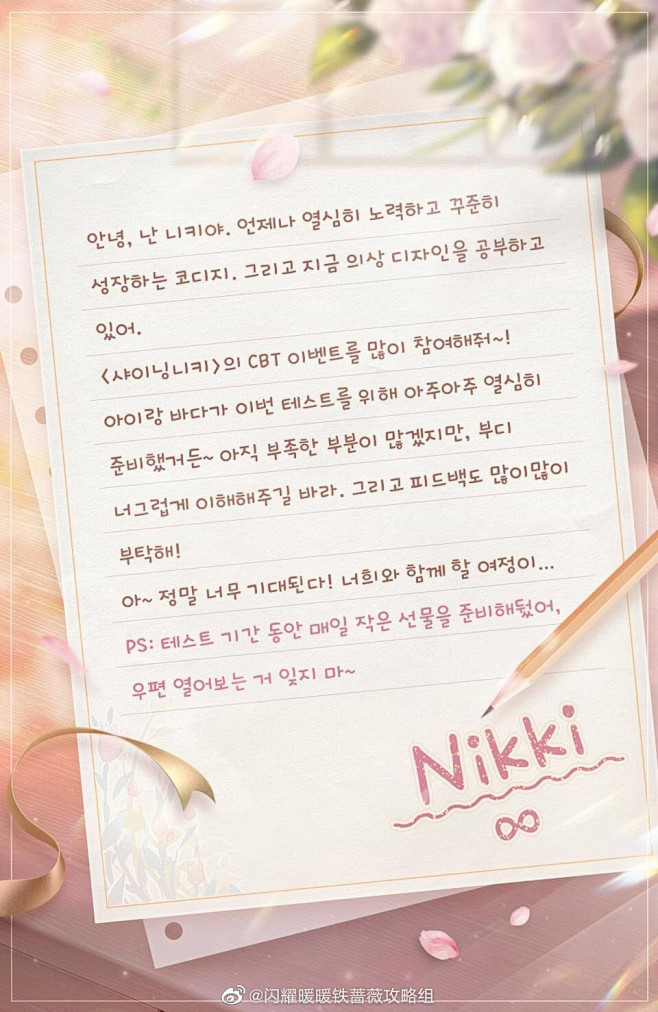 안녕, 난 니키야. 언제나 열심히 노력하고 꾸준히
성장하는 코디지. 그리고 지금 의상 디자인을 공부하고
있어.
<샤이닝니키>의 CBT 이벤트를 많이 참여해줘~!
아이랑 바다가 이번 테스트를 위해 아주아주 열심히
준비했거든~ 아직 부족한 부분이 많겠지만, 부디
너그럽게 이해해주길 바라. 그리고 피드백도 많이많이
부탁해!
아~ 정말 너무 기대된다! 너희와 함께 할 여정이...
PS: 테스트 기간 동안 매일 작은 선물을 준비해뒀어,
우편 열어보는 거 잊지 마~
Nikki
@闪耀暖暖铁蔷薇攻略组